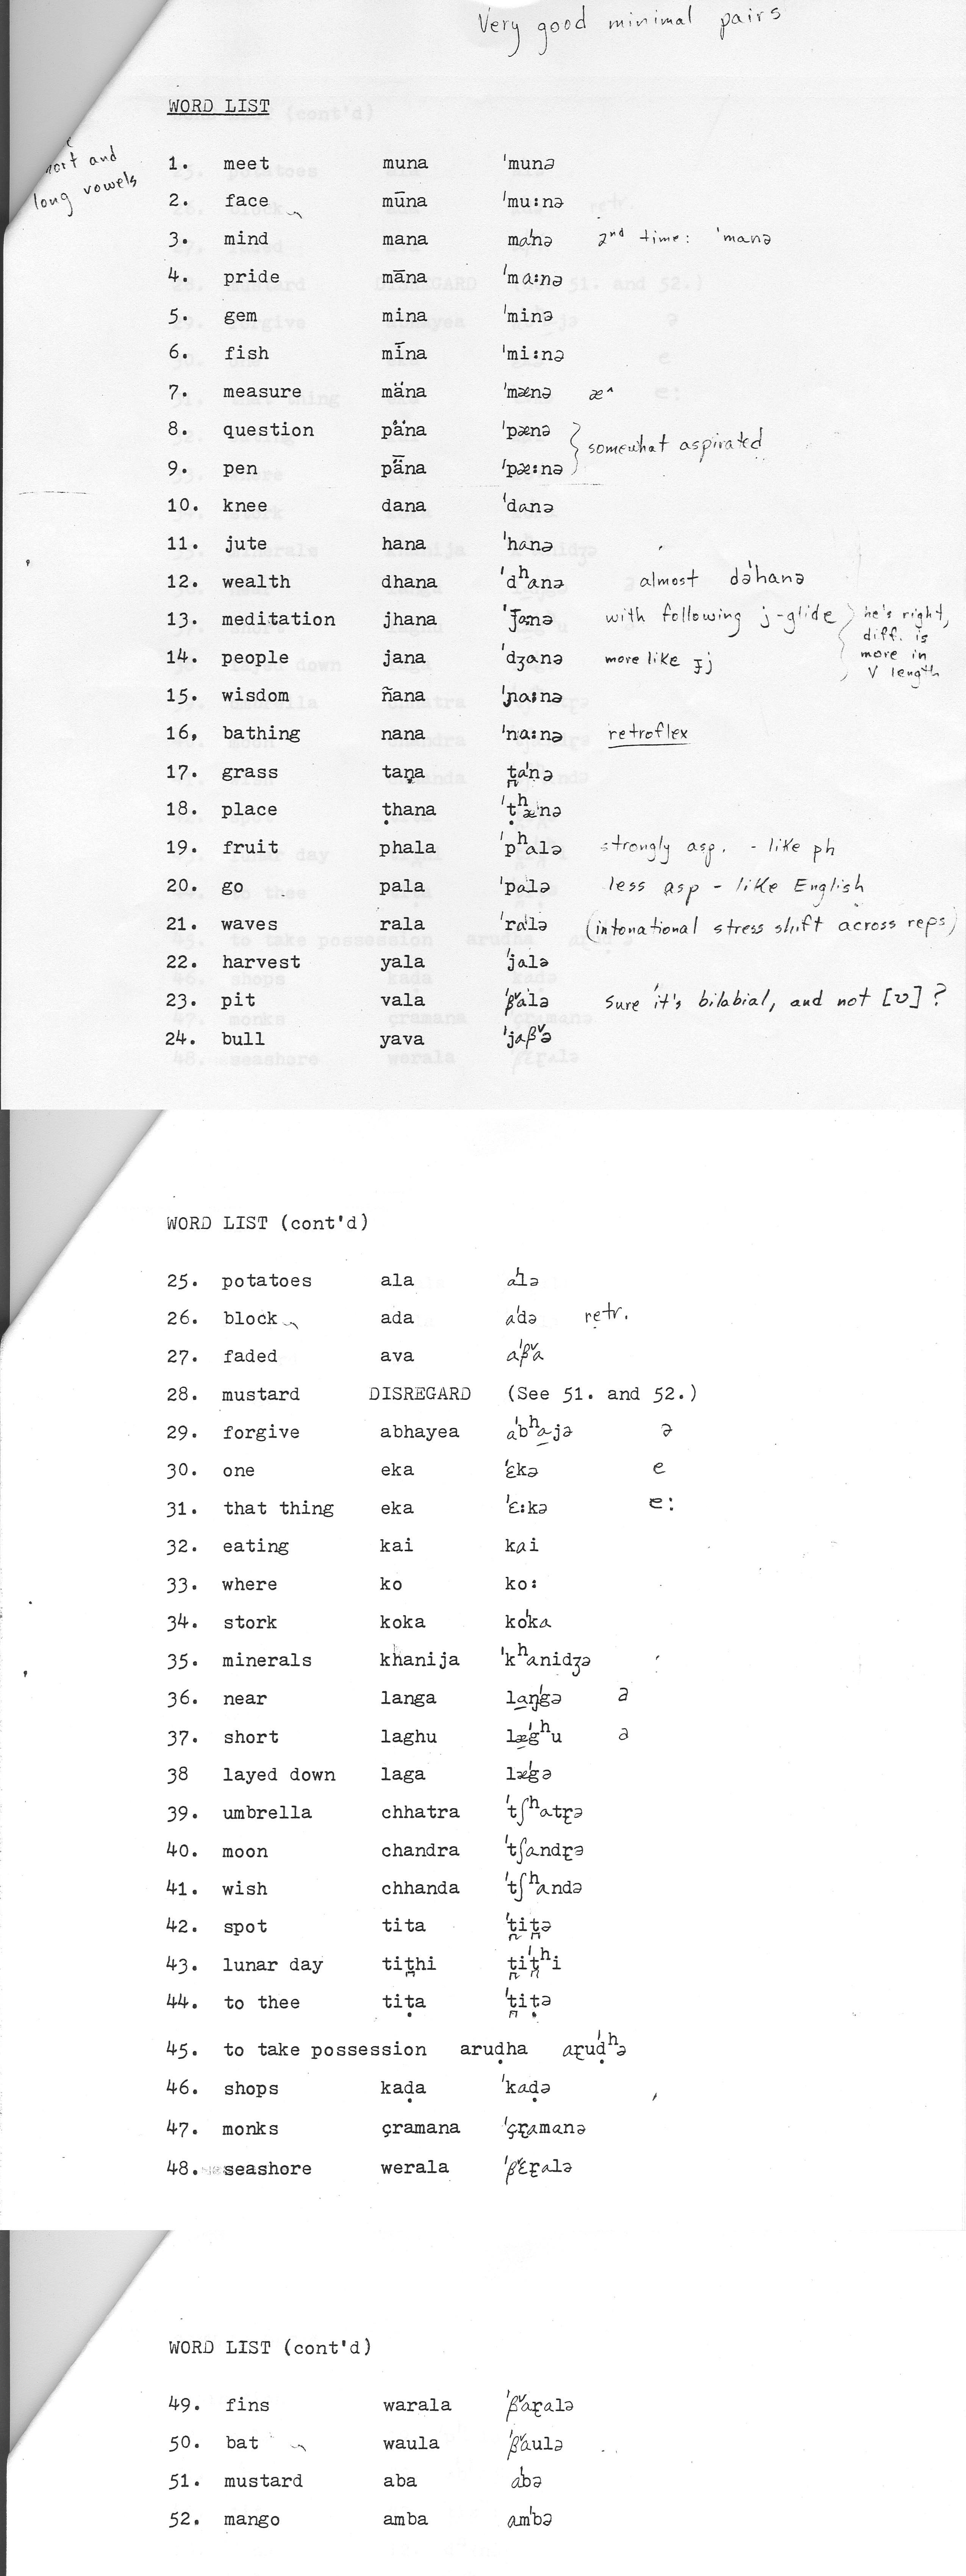 Very good minimal pairs
WORD LIST
and
long vowels
1. meet muna ˈmunə
2. face mūna ˈmu:nə
3. mind mana maˈnə 2nd time: ˈmanə
4. pride māna ˈma:nə
5. gem mina ˈminə
6. fish mīna ˈmi:nə
7. measure mäna ˈmænə æ^
8. question päna ˈpænə
somewhat aspirated
9. pen pǟna ˈpæ:nə
10. knee dana ˈdanə
11. jute hana ˈhanə
12. wealth dhana ˈdʰanə almost dəˈhanə
13. meditation jhana ˈɟanə with following j-glide he's right,
diff. is
14. people jana ˈdʒanə more like ɟj more in
V length
15. wisdom ñana ˈɲa:nə
16, bathing nana ˈna:nə retroflex
17. grass taṇa t̪aˈnə
18. place ṭhana ˈṭʰæˈnə
19. fruit phala ˈpʰalə strongly asp. - like ph
20. go pala ˈpalə less asp - like English
21. waves rala ˈraˈlə (intonational stress shift across reps)
22. harvest yala ˈjalə
23. pit vala ˈβ̌aˈlə Sure it's bilabial, and not [ʋ] ?
24. bull yava ˈjaβ̌ə
WORD LIST (cont'd)
25. potatoes ala aˈlə
26. block ada aˈdə retr.
27. faded ava aˈβ̌a
28. mustard DISREGARD (See 51. and 52.)
29. forgive abhayea aˈbʰa̱jə ə
30. one eka ˈɛkə e
31. that thing eka ˈɛ:kə e:
32. eating kai kai
33. where ko ko:
34. stork koka koˈka
35. minerals khanija ˈkʰanidʒə
36. near langa la̱ŋˈgə ə
37. short laghu læ̱ˈgʰu ə
38 layed down laga læˈgə
39. umbrella chhatra ˈtʃʰatɽə
40. moon chandra ˈtʃandɽə
41. wish chhanda ˈtʃʰandə
42. spot tita ˈt̪it̪ə
43. lunar day tit̪hi t̪iˈt̪ʰi
44. to thee tiṭa ˈt̪iṭə
45. to take possession aruḍha aɽuˈḍʰə
46. shops kaḍa ˈkaḍə
47. monks çramana ˈçɽamanə
48. seashore werala ˈβ̌ɛɽalə
WORD LIST (cont'd)
49. fins warala ˈβ̌aɽalə
50. bat waula ˈβ̌aulə
51. mustard aba aˈbə
52. mango amba amˈbə